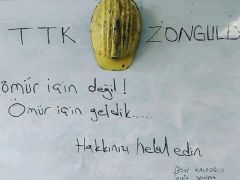 TTK ZONGULD
ömür için değil!
Ömür için geldik.....
Hakkınızı helal edin